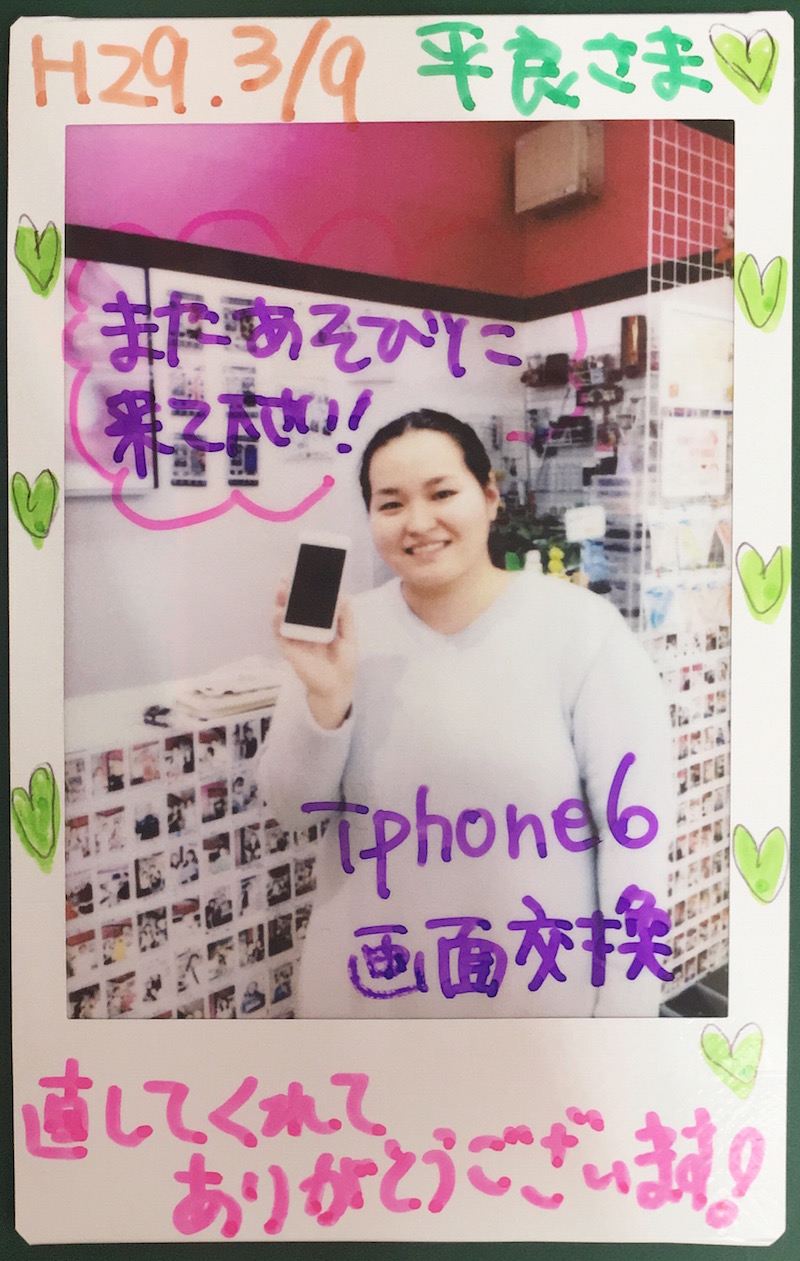 H29.3/9 平良さま
またあそびに
来て下さい!
iphone6
画面交換
直してくれて
ありがとうございます!